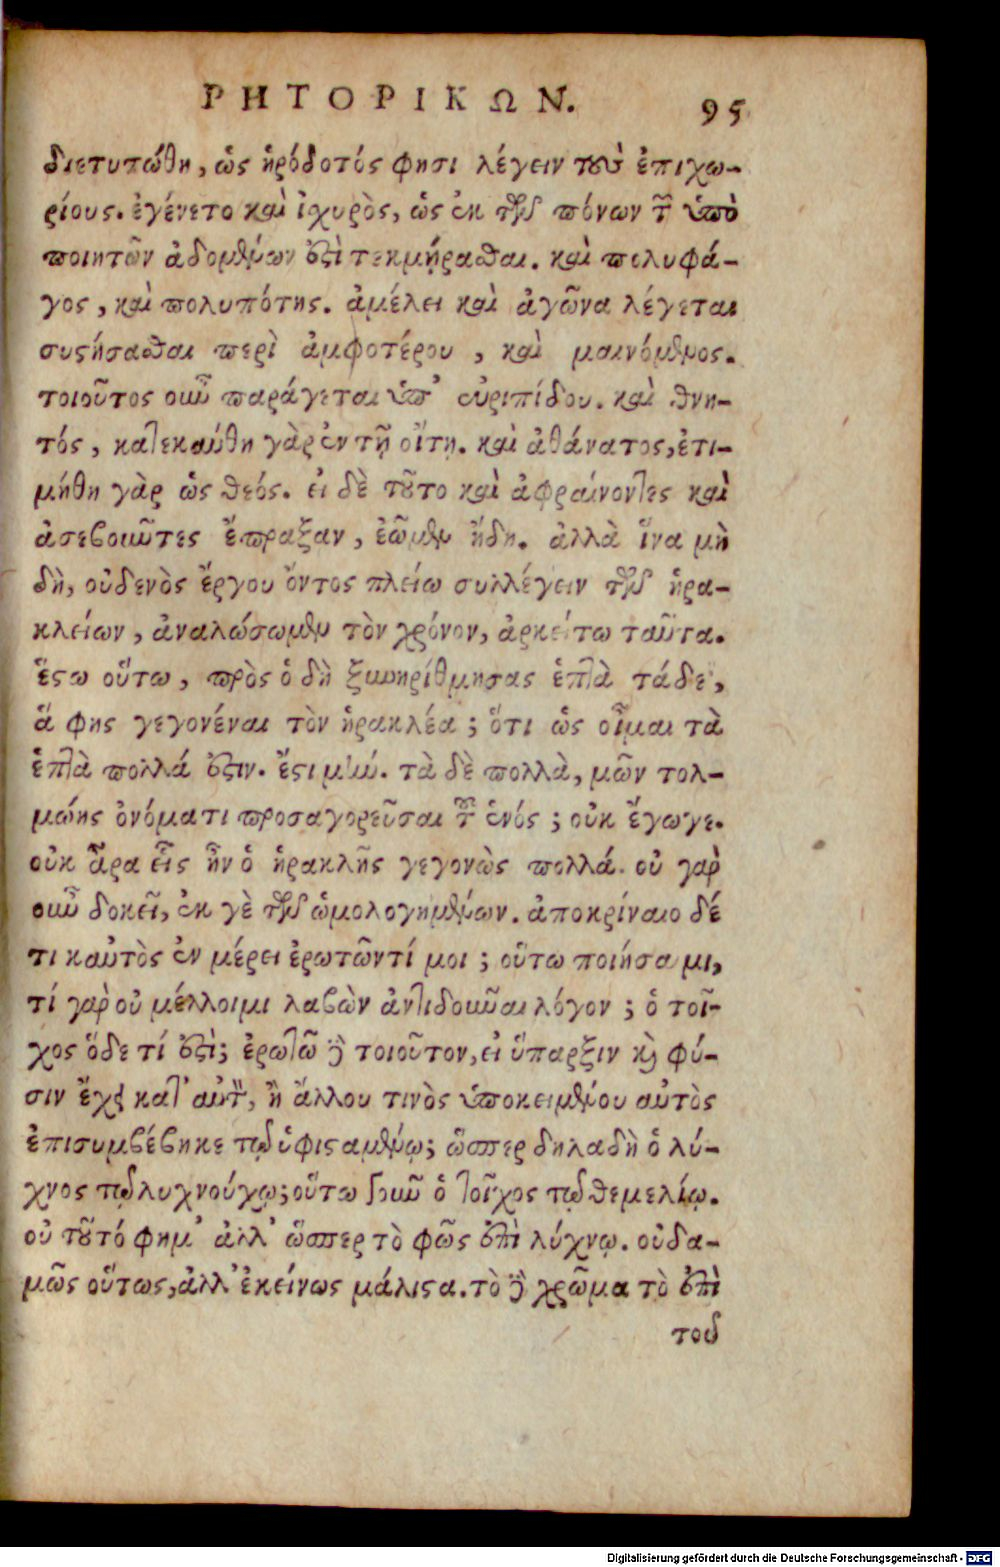 ΡΗΤΟΡΙΚΩΝ. 95
διετυπώθη, ὡς ἡρόδοτός φησι λέγειν τοὺς ἐπιχω-
ρίους. ἐγένετο καὶ ἰχυρὸς, ὡς ἐκ τῶν πόνων τῶν ὑπὸ
ποιητῶν ᾀδομένων ἐστὶ τεκμήρασθαι. καὶ πολυφά-
γος, καὶ πολυπότης. ἀμέλει καὶ ἀγῶνα λέγεται
συστήσασθαι περὶ ἀμφοτέρου, καὶ μαινόμενος.
τοιοῦτος οὖν παράγεται ὑπ’ εὐριπίδου. καὶ θνη-
τός, κατεκαύθη γὰρ ἐν τῇ οἴτῃ. καὶ ἀθάνατος, ἐτι-
μήθη γὰρ ὡς θεός. εἰ δὲ τοῦτο καὶ ἀφραίνοντες καὶ
ἀσεβοῦντες ἔπραξαν, ἐῶμεν ἤδη. ἀλλὰ ἵνα μὴ
δὴ, οὐδενὸς ἔργου ὄντος πλείω συλλέγειν τῶν ἡρα-
κλείων, ἀναλώσωμεν τὸν χρόνον, ἀρκείτω ταῦτα.
ἔστω οὕτω, πρὸς ὃ δὴ ξυνηρίθμησας ἑπτὰ τάδε,
ἅ φης γεγονέναι τὸν ἡρακλέα; ὅτι ὡς οἶμαι τὰ
ἑπτὰ πολλά ἐστιν. ἔστι μὲν. τὰ δὲ πολλὰ, μῶν τολ-
μώης ὀνόματι προσαγορεῦσαι τοῦ ἑνός; οὐκ ἔγωγε.
οὐκ ἆρα εἷς ἦν ὁ ἡρακλῆς γεγονὼς πολλά. οὐ γὰρ
οὖν δοκεῖ, ἐκ γὲ τῶν ὡμολογημένων. ἀποκρίναιο δέ
τι καὐτὸς ἐν μέρει ἐρωτῶντί μοι; οὕτω ποιήσαιμι,
τί γὰρ οὐ μέλλοιμι λαβὼν ἀντιδοῦναι λόγον; ὁ τοῖ-
χος ὅδε τί ἐστὶ; ἐρωτῶ δὲ τοιοῦτον, εἰ ὕπαρξιν καὶ φύ-
σιν ἔχει κατ’ αὑτὸν, ἢ ἄλλου τινὸς ὑποκειμένου αὐτὸς
ἐπισυμβέβηκε τῷ ὑφισταμένῳ; ὥσπερ δηλαδὴ ὁ λύ-
χνος τῷ λυχνούχῳ; οὕτω γοῦν ὁ τοῖχος τῷ θεμελίῳ.
οὐ τοῦτό φημ’ ἀλλ’ ὥσπερ τὸ φῶς ἐπὶ λύχνῳ. οὐδα-
μῶς οὕτως, ἀλλ’ ἐκείνως μάλιστα. τὸ δὲ χρῶμα τὸ ἐπὶ
τοῦ
Digitalisierung gefördert durch die Deutsche Forschungsgemeinschaft - DFG